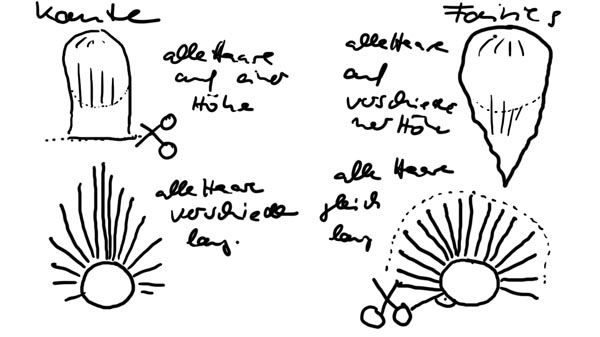 Kante
alle Haare
auf einer
Höhe
alle Haare
verschieden
lang.
Fairies
alle Haare
auf
verschiede
ner Höhe
alle Haare
gleich
lang